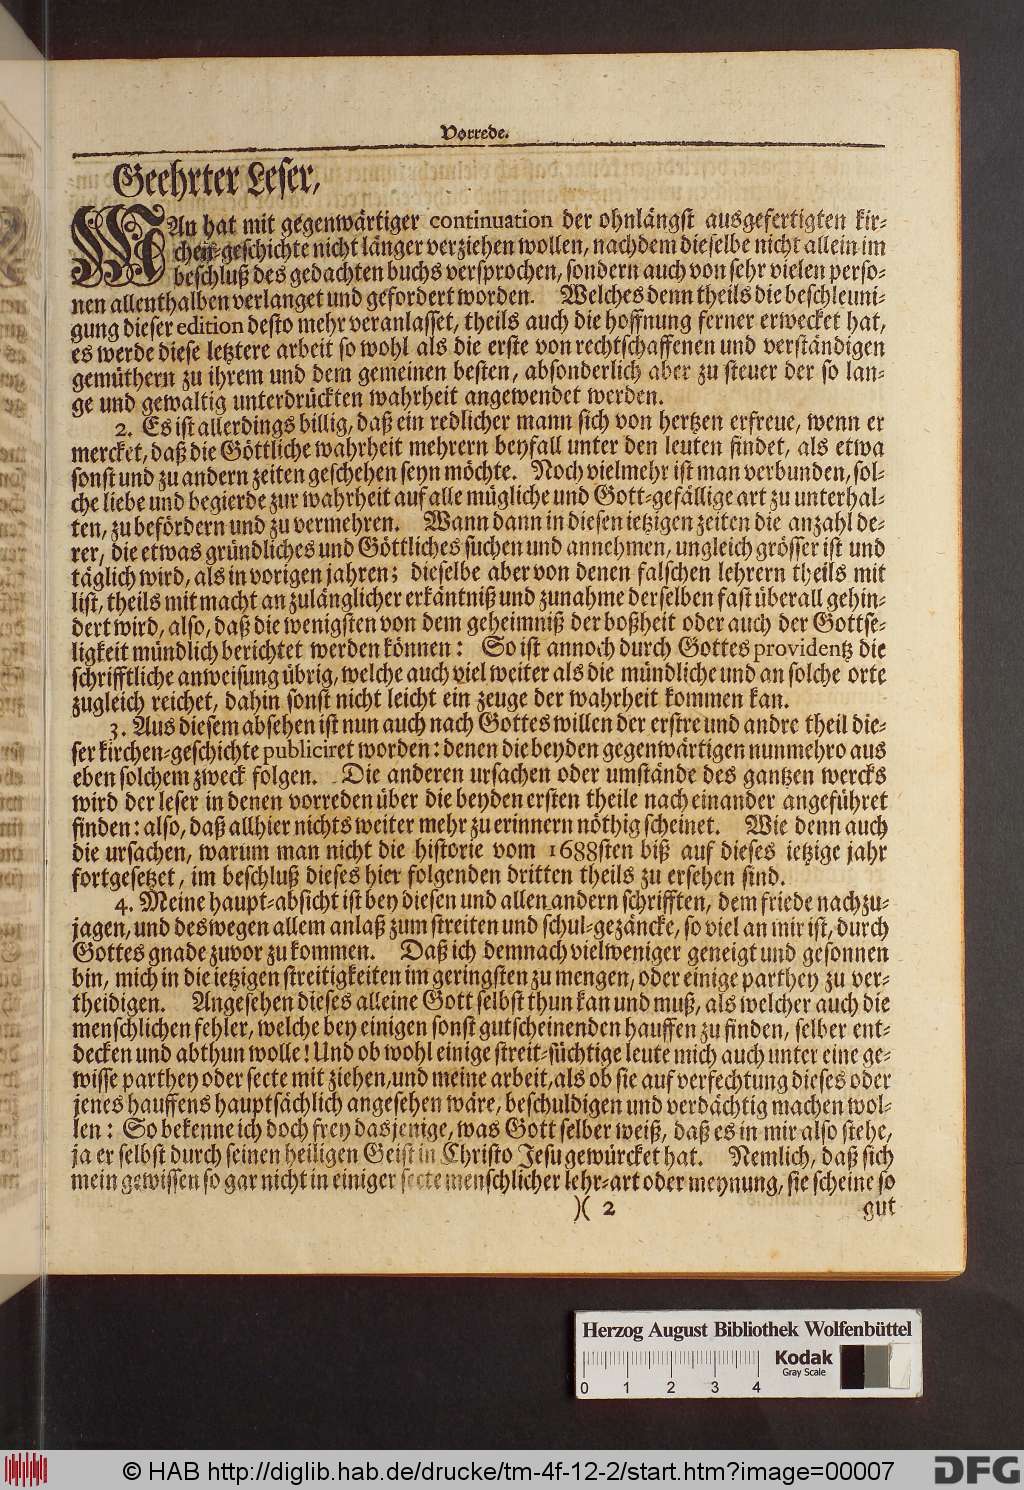 Vorrede.
Geehrter Leser,
WAn hat mit gegenwärtiger continuation der ohnlängst ausgefertigten kir-
chen-geschichte nicht länger verziehen wollen, nachdem dieselbe nicht allein im
beschluß des gedachten buchs versprochen, sondern auch von sehr vielen perso-
nen allenthalben verlanget und gefordert worden. Welches denn theils die beschleuni-
gung dieser edition desto mehr veranlasset, theils auch die hoffnung ferner erwecket hat,
es werde diese letztere arbeit so wohl als die erste von rechtschaffenen und verständigen
gemüthern zu ihrem und dem gemeinen besten, absonderlich aber zu steuer der so lan-
ge und gewaltig unterdrückten wahrheit angewendet werden.
2. Es ist allerdings billig, daß ein redlicher mann sich von hertzen erfreue, wenn er
mercket, daß die Göttliche wahrheit mehrern beyfall unter den leuten findet, als etwa
sonst und zu andern zeiten geschehen seyn möchte. Noch vielmehr ist man verbunden, sol-
che liebe und begierde zur wahrheit auf alle mügliche und Gott-gefällige art zu unterhal-
ten, zu befördern und zu vermehren. Wann dann in diesen ietzigen zeiten die anzahl de-
rer, die etwas gründliches und Göttliches suchen und annehmen, ungleich grösser ist und
täglich wird, als in vorigen jahren; dieselbe aber von denen falschen lehrern theils mit
list, theils mit macht an zulänglicher erkäntniß und zunahme derselben fast überall gehin-
dert wird, also, daß die wenigsten von dem geheimniß der boßheit oder auch der Gottse-
ligkeit mündlich berichtet werden können: So ist annoch durch Gottes providentz die
schrifftliche anweisung übrig, welche auch viel weiter als die mündliche und an solche orte
zugleich reichet, dahin sonst nicht leicht ein zeuge der wahrheit kommen kan.
3. Aus diesem absehen ist nun auch nach Gottes willen der erstre und andre theil die-
ser kirchen-geschichte publiciret worden: denen die beyden gegenwärtigen nunmehro aus
eben solchem zweck folgen. Die anderen ursachen oder umstände des gantzen wercks
wird der leser in denen vorreden über die beyden ersten theile nach einander angeführet
finden: also, daß allhier nichts weiter mehr zu erinnern nöthig scheinet. Wie denn auch
die ursachen, warum man nicht die historie vom 1688sten biß auf dieses ietzige jahr
fortgesetzet, im beschluß dieses hier folgenden dritten theils zu ersehen sind.
4. Meine haupt-absicht ist bey diesen und allen andern schrifften, dem friede nachzu-
jagen, und deswegen allem anlaß zum streiten und schul-gezäncke, so viel an mir ist, durch
Gottes gnade zuvor zu kommen. Daß ich demnach vielweniger geneigt und gesonnen
bin, mich in die ietzigen streitigkeiten im geringsten zu mengen, oder einige parthey zu ver-
theidigen. Angesehen dieses alleine Gott selbst thun kan und muß, als welcher auch die
menschlichen fehler, welche bey einigen sonst gutscheinenden hauffen zu finden, selber ent-
decken und abthun wolle! Und ob wohl einige streit-süchtige leute mich auch unter eine ge-
wisse parthey oder secte mit ziehen, und meine arbeit, als ob sie auf verfechtung dieses oder
jenes hauffens hauptsächlich angesehen wäre, beschuldigen und verdächtig machen wol-
len: So bekenne ich doch frey dasjenige, was Gott selber weiß, daß es in mir also stehe,
ja er selbst durch seinen heiligen Geist in Christo Jesu gewürcket hat. Nemlich, daß sich
mein gewissen so gar nicht in einiger secte menschlicher lehr-art oder meynung, sie scheine so
)( 2 gut
Herzog August Bibliothek Wolfenbüttel
0 1 2 3 4
Kodak
Gray Scale
© HAB http://diglib.hab.de/drucke/tm-4f-12-2/start.htm?image=00007
DFG